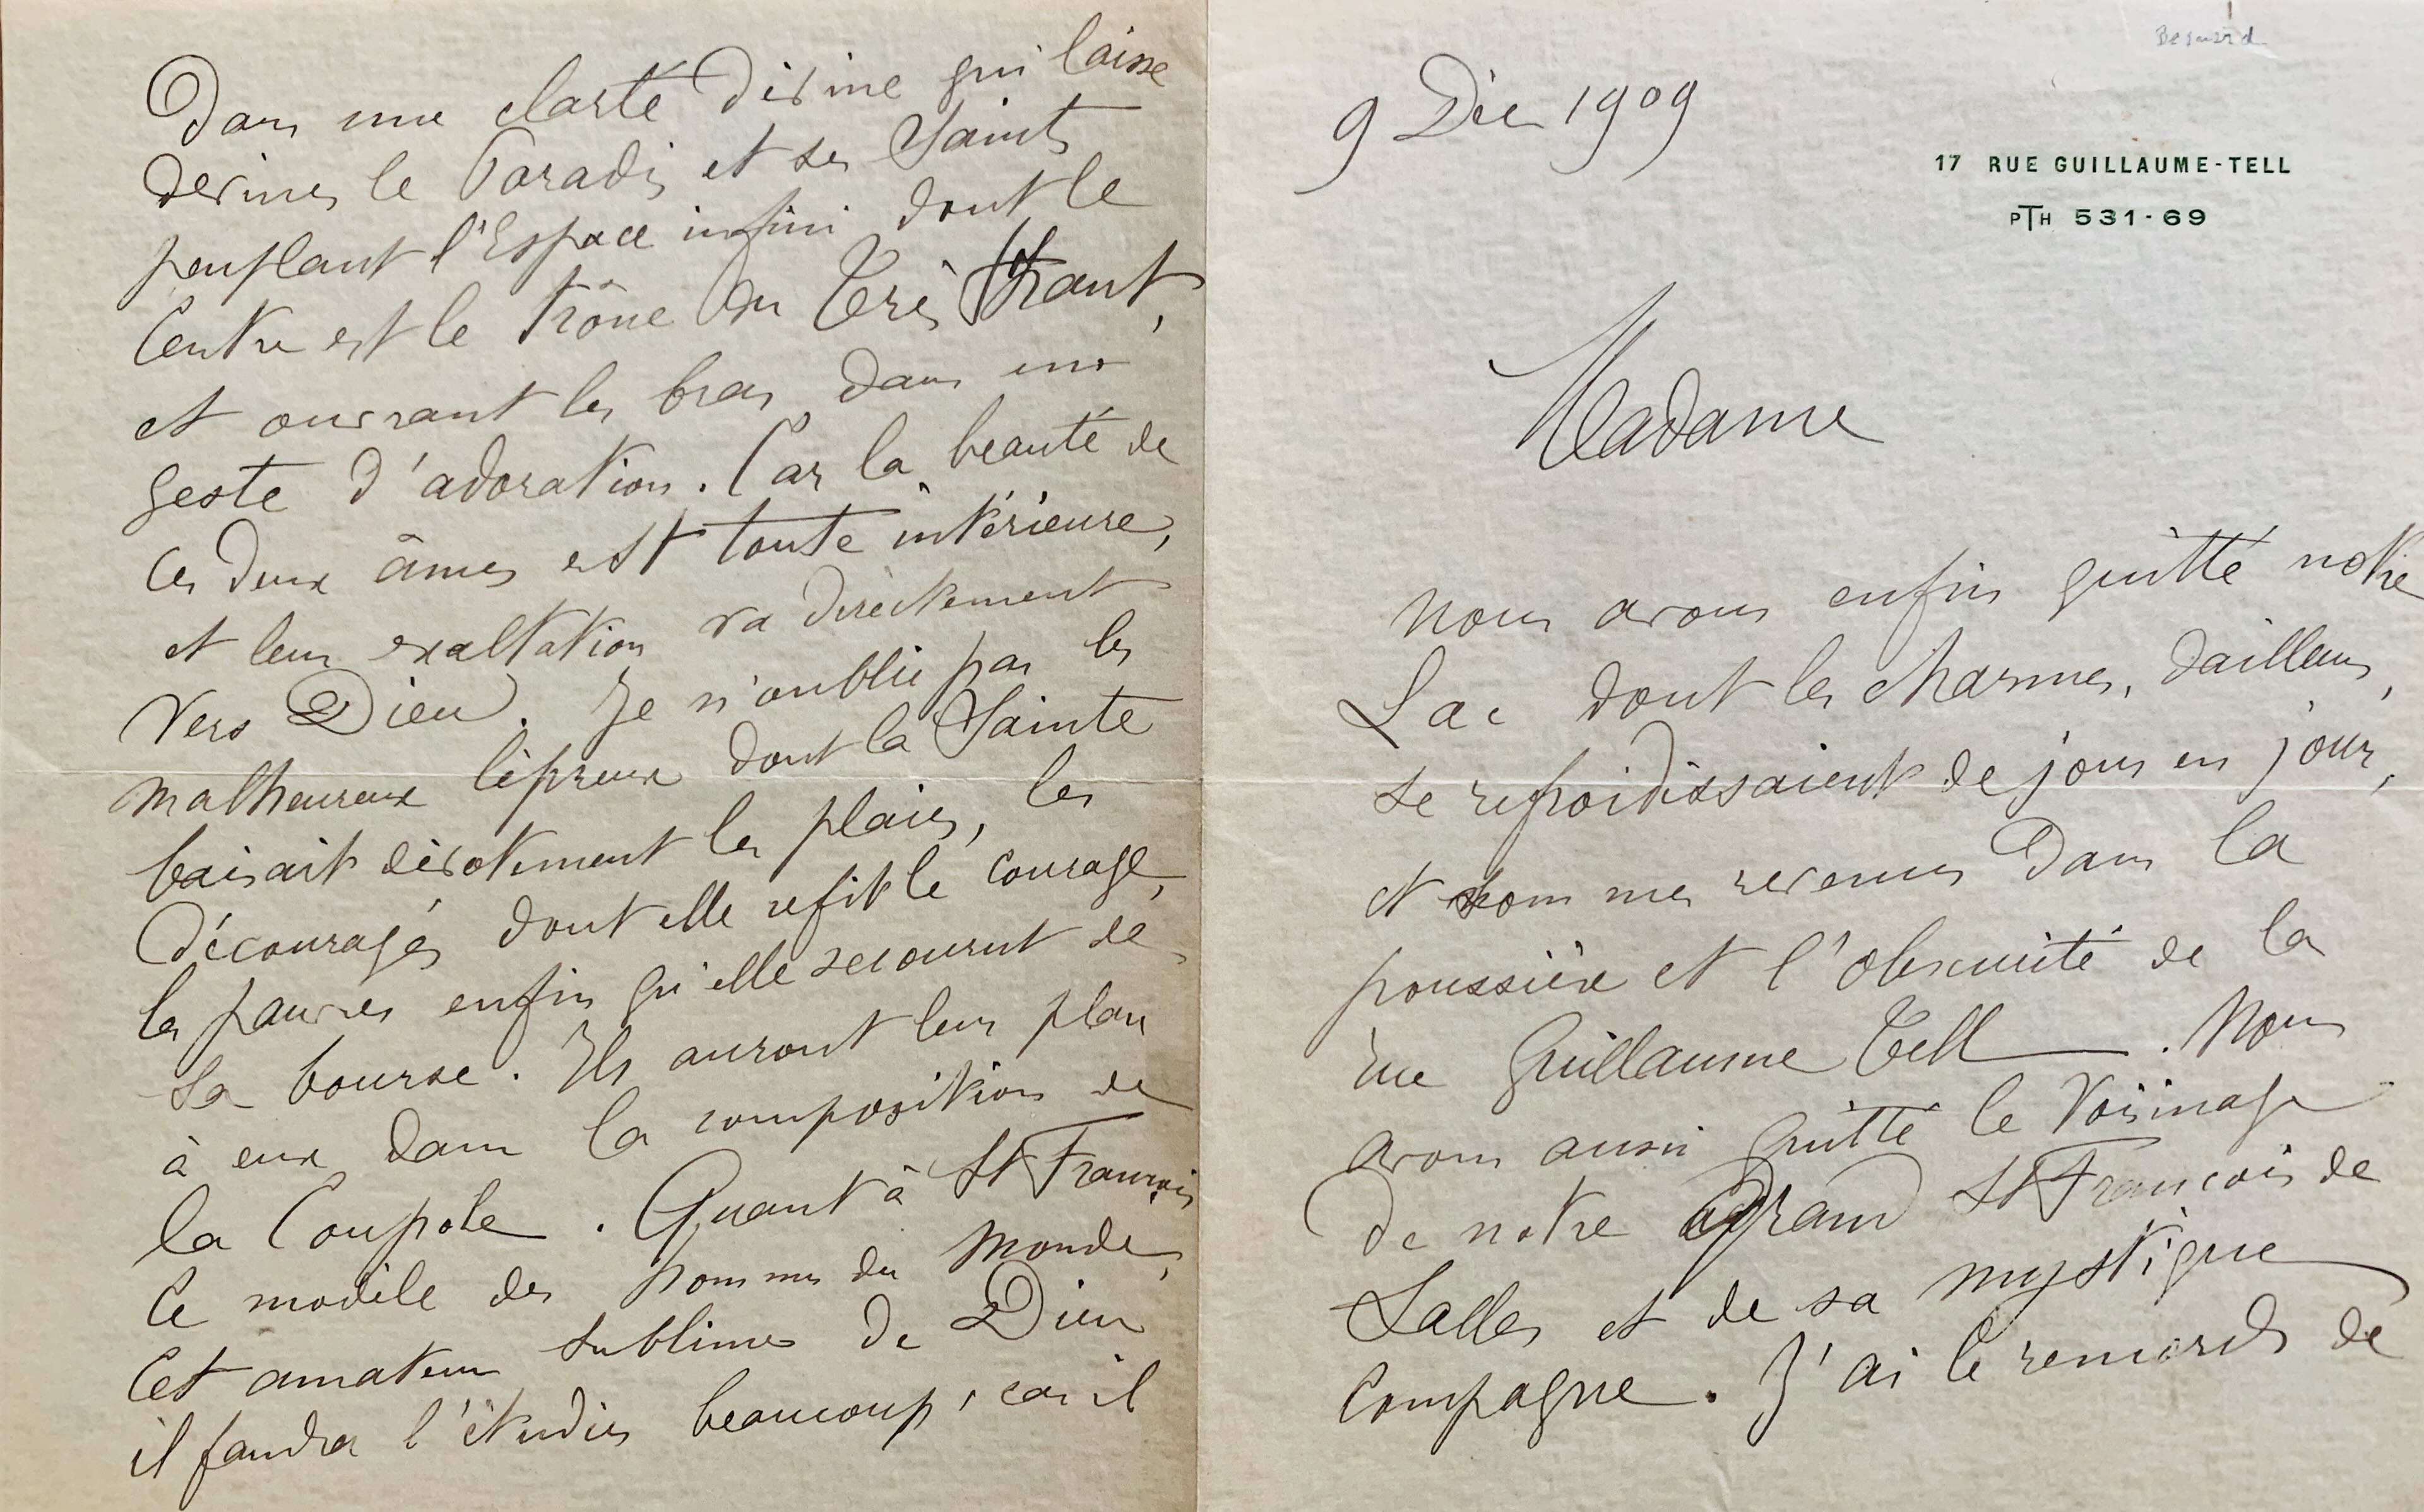 Besnard
9 Déc 1909
17 RUE GUILLAUME-TELL
PTH 531-69
Madame
nous avons enfin quitté notre
Lac dont les charmes, dailleurs,
se refroidissaient de jour en jour,
et sommes revenus dans la
poussière et l'obscurité de la
rue Guillaume Tell. Nous
avons aussi quitté le voisinage
de notre Grand St François de
Salles et de sa mystique
compagne. J'ai le remords de
Dans une clarté divine qui laisse
deviner le Paradis et ses Saints
peuplant l'Espace infini dont le
Centre est le Trône du Très Haut,
et ouvrant les bras dans un
geste d'adoration. Car la beauté de
ces deux âmes est toute intérieure,
et leur exaltation va directement
vers Dieu. Je n'oublie pas les
malheureux lépreux dont la Sainte
baisait dévotement les plaies, les
découragés dont elle refit le courage,
les pauvres enfin qu'elle secourut de
sa bourse. Ils auront leur plan
à eux dans la composition de
la Coupole. Quant à St François
ce modèle des hommes du Monde,
cet amateur sublime de Dieu
il faudra l'étudier beaucoup, car il